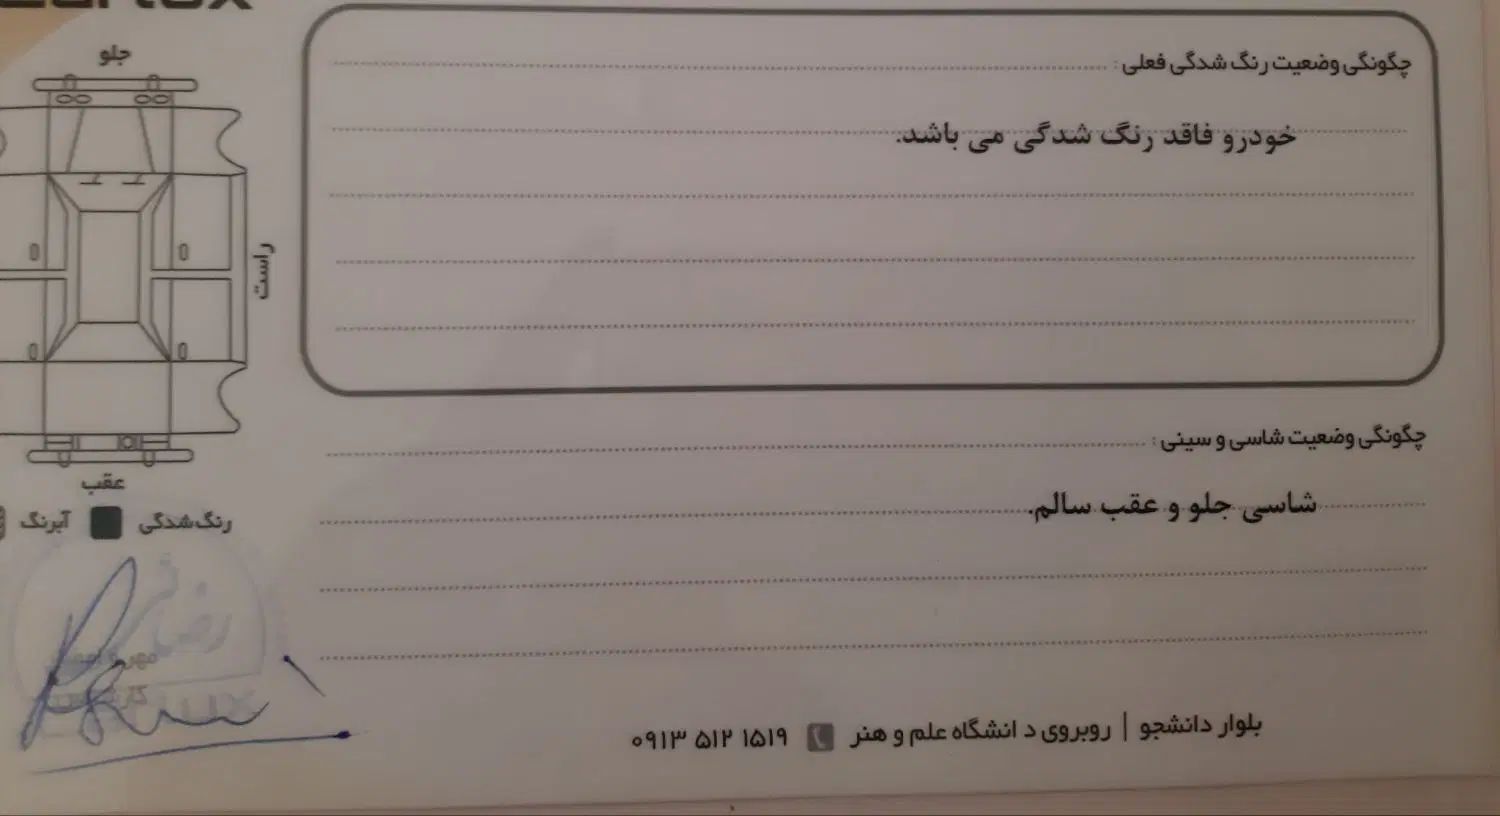 جلو
چگونگی وضعیت رنگ شدگی فعلی :
خودرو فاقد رنگ شدگی می باشد.
راست
چگونگی وضعیت شاسی و سینی :
عقب
شاسی جلو و عقب سالم.
رنگ‌شدگی آبرنگ
بلوار دانشجو | روبروی د انشگاه علم و هنر ۰۹۱۳ ۵۱۲ ۱۵۱۹